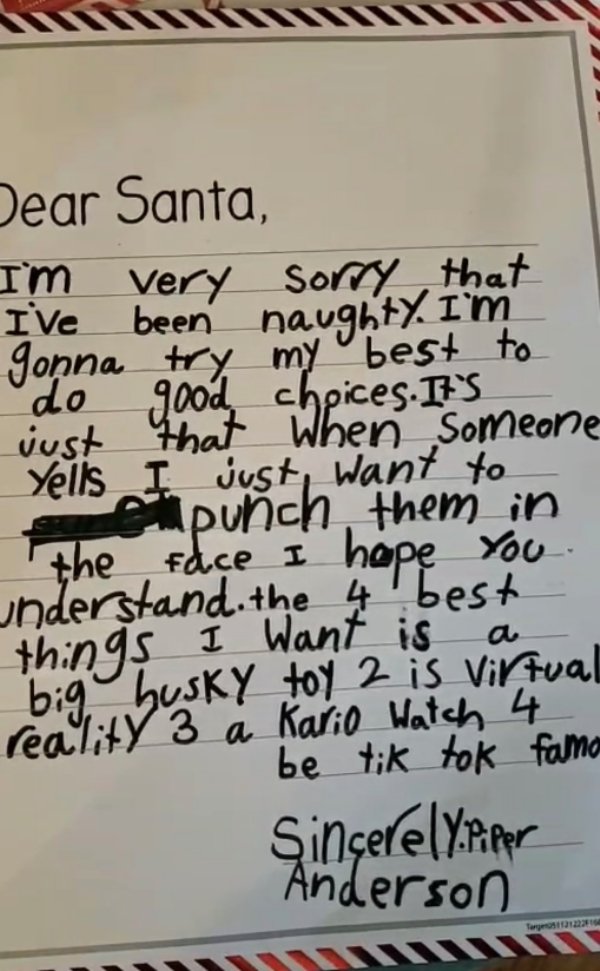 Dear Santa,
I'm very sorry that
I've been naughty. I'm
gonna try my best to
do good choices. It's
just that when someone
yells I just want to
punch them in
the face I hope you
understand. the 4 best
things I want is a
big husky toy 2 is virtual
reality 3 a Kario Watch 4
be tik tok famo
Sincerely. Piper
Anderson